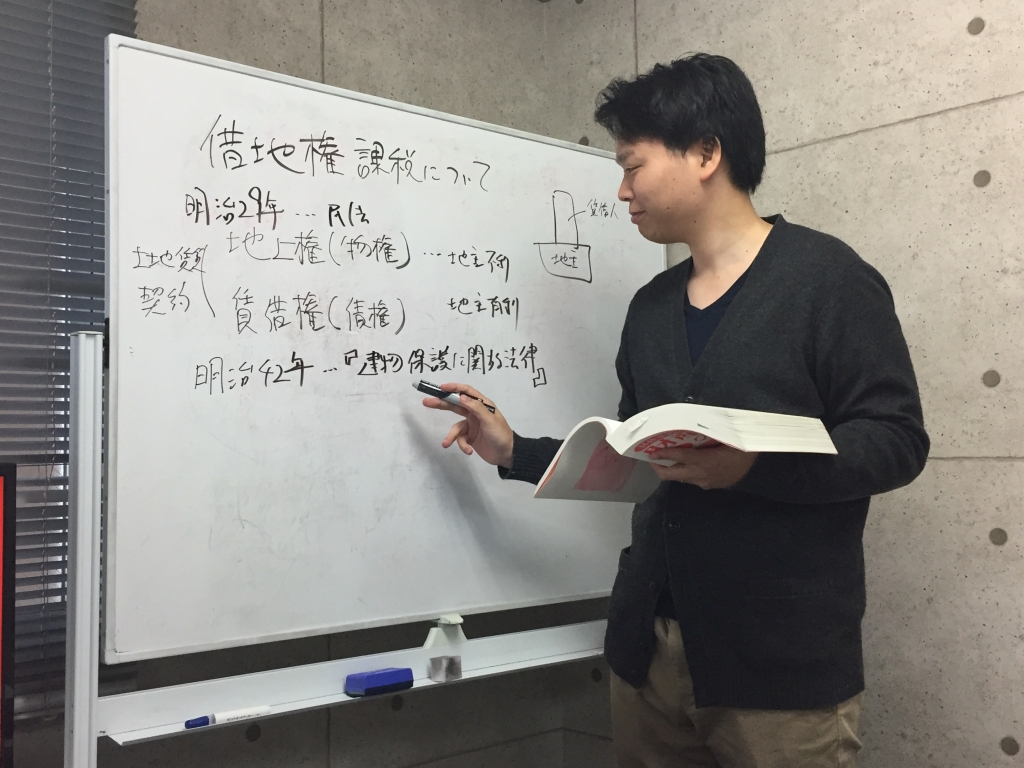 借地権課税について
明治29年…民法
土地賃契約
地上権(物権)…地主不利
賃借権(債権) 地主有利
明治42年…『建物保護に関する法律』
賃借人
地主